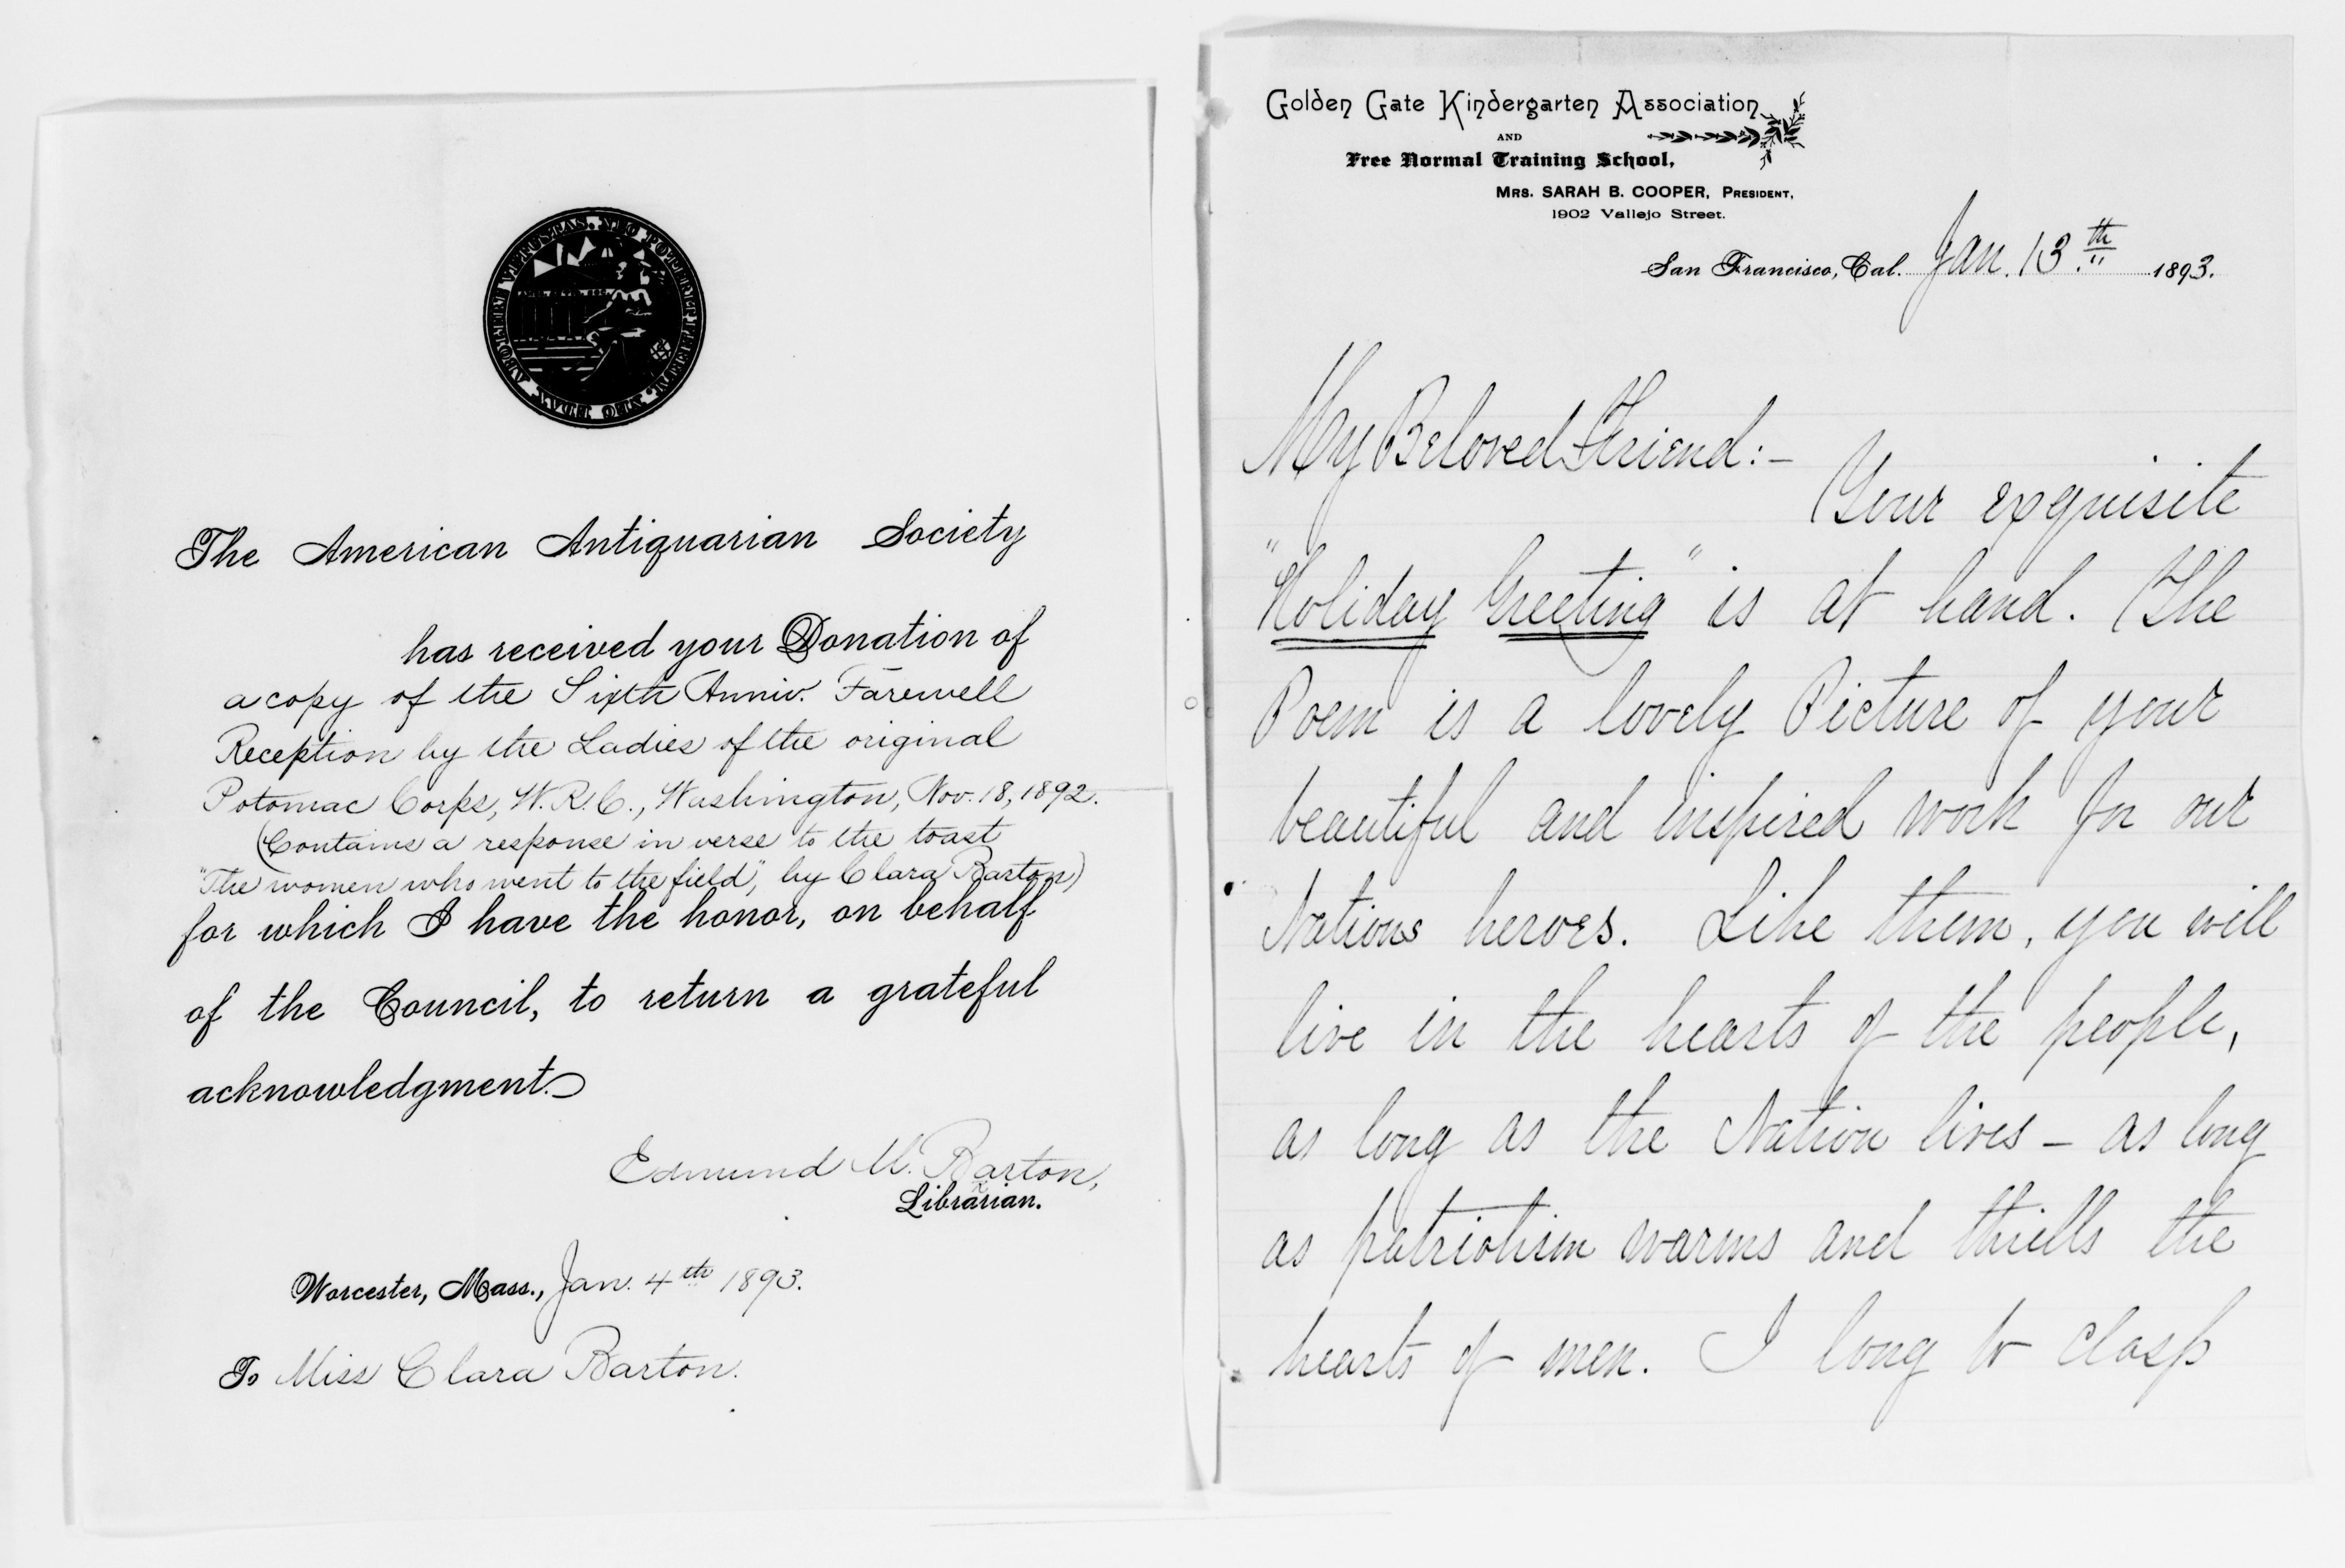 The American Antiquarian Society
has received your Donation of
a copy of the Sixth Anniv. Farewell
Reception by the Ladies of the original
Potomac Corps, W.R.C., Washington, Nov. 18, 1892.
(Contains a response in verse to the toast
"The women who went to the field", by Clara Barton)
for which I have the honor, on behalf
of the Council, to return a grateful
acknowledgment.
Edmund M. Barton,
Librarian.
Worcester, Mass., Jan. 4th 1893.
To Miss Clara Barton.
Golden Gate Kindergarten Association
AND
Free Normal Training School,
MRS. SARAH B. COOPER, PRESIDENT,
1902 Vallejo Street.
San Francisco, Cal. Jan. 13th 1893.
My Beloved Friend:-
Your exquisite
"Holiday Greeting" is at hand. The
Poem is a lovely Picture of your
beautiful and inspired work for our
Nations heroes. Like them, you will
live in the hearts of the people,
as long as the Nation lives - as long
as patriotism warms and thrills the
hearts of men. I long to clasp